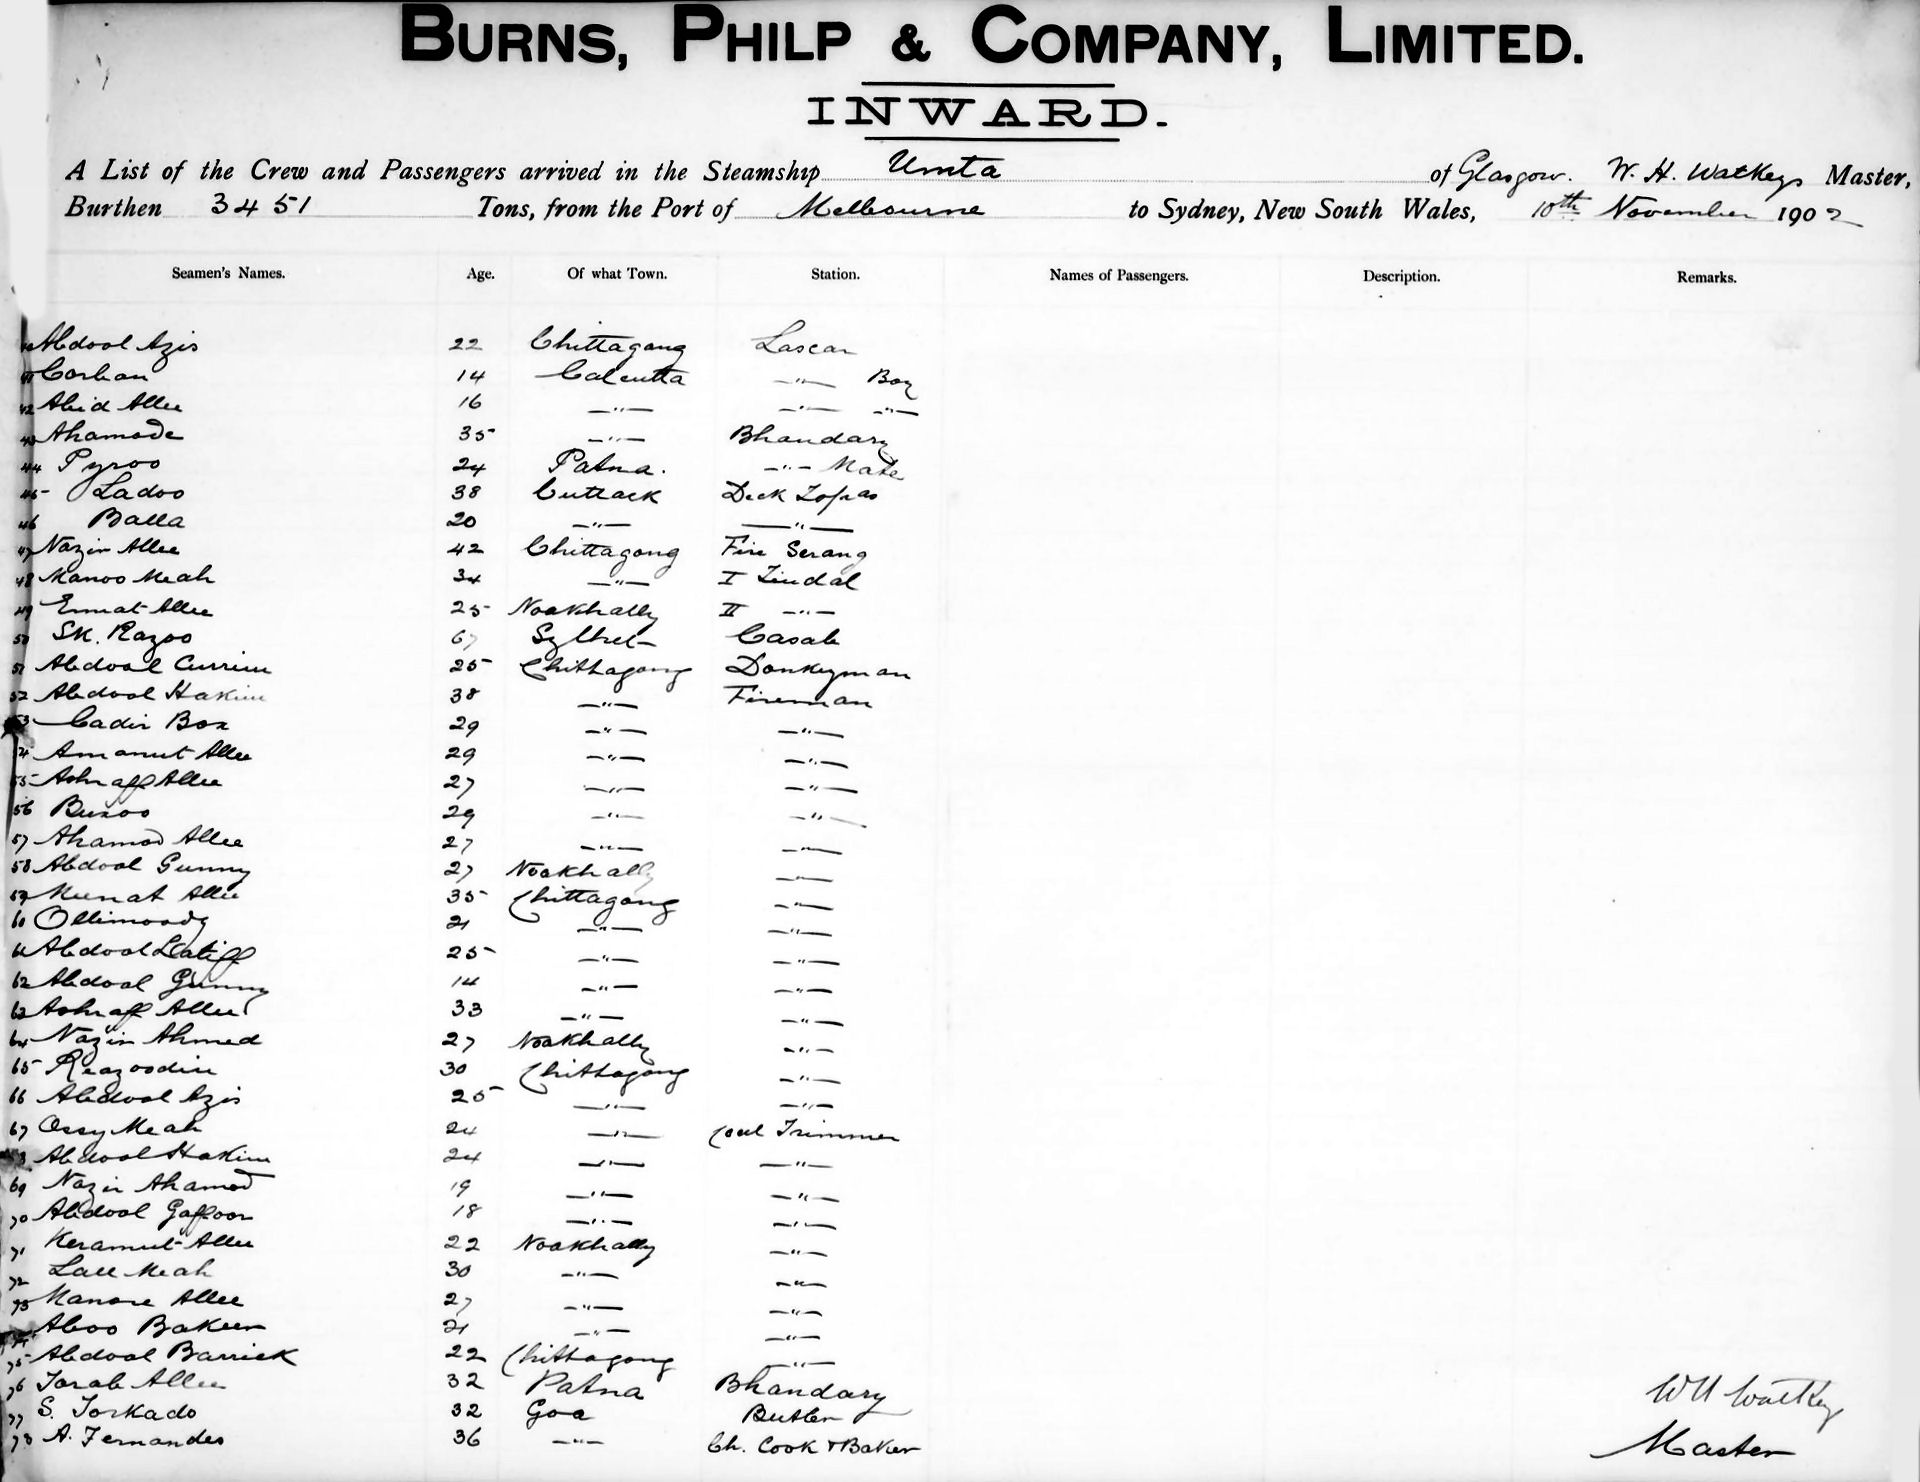 BURNS, PHILP & COMPANY, LIMITED.
INWARD.
A List of the Crew and Passengers arrived in the Steamship Umta of Glasgow. W. H. Watkeys Master,
Burthen 3451 Tons, from the Port of Melbourne to Sydney, New South Wales, 10th November 1902
Seamen's Names. Age. Of what Town. Station. Names of Passengers. Description. Remarks.
Abdool Azis 22 Chittagong Lascar
41 Corban 14 Calcutta —"— Boy
42 Abid Allee 16 —"— —"— —"—
43 Ahamode 35 —"— Bhandary
44 Pyroo 24 Patna. —"— Mate
45 Ladoo 38 Cuttack Deck Topas
46 Balla 20 —"— —"—
47 Nazir Allee 42 Chittagong Fire Serang
48 Manoo Meah 34 —"— I Tindal
49 Ennat Allee 25 Noakhally II —"—
50 Sk. Razoo 67 Sylhet Casab
51 Abdool Currim 25 Chittagong Donkeyman
52 Abdool Hakim 38 —"— Fireman
53 Cadir Box 29 —"— —"—
54 Amanut Allee 29 —"— —"—
55 Ashraff Allee 27 —"— —"—
56 Buxoo 29 —"— —"—
57 Ahamod Allee 27 —"— —"—
58 Abdool Gunny 27 Noakhally —"—
59 Allee 35 Chittagong —"—
60 Ollimoody 21 —"— —"—
61 Abdool Latiff 25 —"— —"—
62 Abdool Gunny 14 —"— —"—
63 Ashraff Allee 33 —"— —"—
64 Nazir Ahmed 27 Noakhally —"—
65 Reazoodin 30 Chittagong —"—
66 Abdool Azis 25 —"— —"—
67 Ossy Meah 24 —"— Coal Trimmer
68 Abdool Hakim 24 —"— —"—
69 Nazir Ahamod 19 —"— —"—
70 Abdool Gaffoor 18 —"— —"—
71 Keramut Allee 22 Noakhally —"—
72 Lall Meah 30 —"— —"—
73 Manore Allee 27 —"— —"—
74 Aboo Bakeer 21 —"— —"—
75 Abdool Barrick 22 Chittagong —"—
76 Torab Allee 32 Patna Bhandary
77 S. Torkado 32 Goa Butler
78 A. Fernandes 36 —"— Ch. Cook & Baker
W H Watkeys
Master